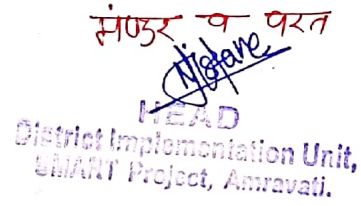 मंजुर व परत
HEAD
District Implementation Unit,
SMART Project, Amravati.